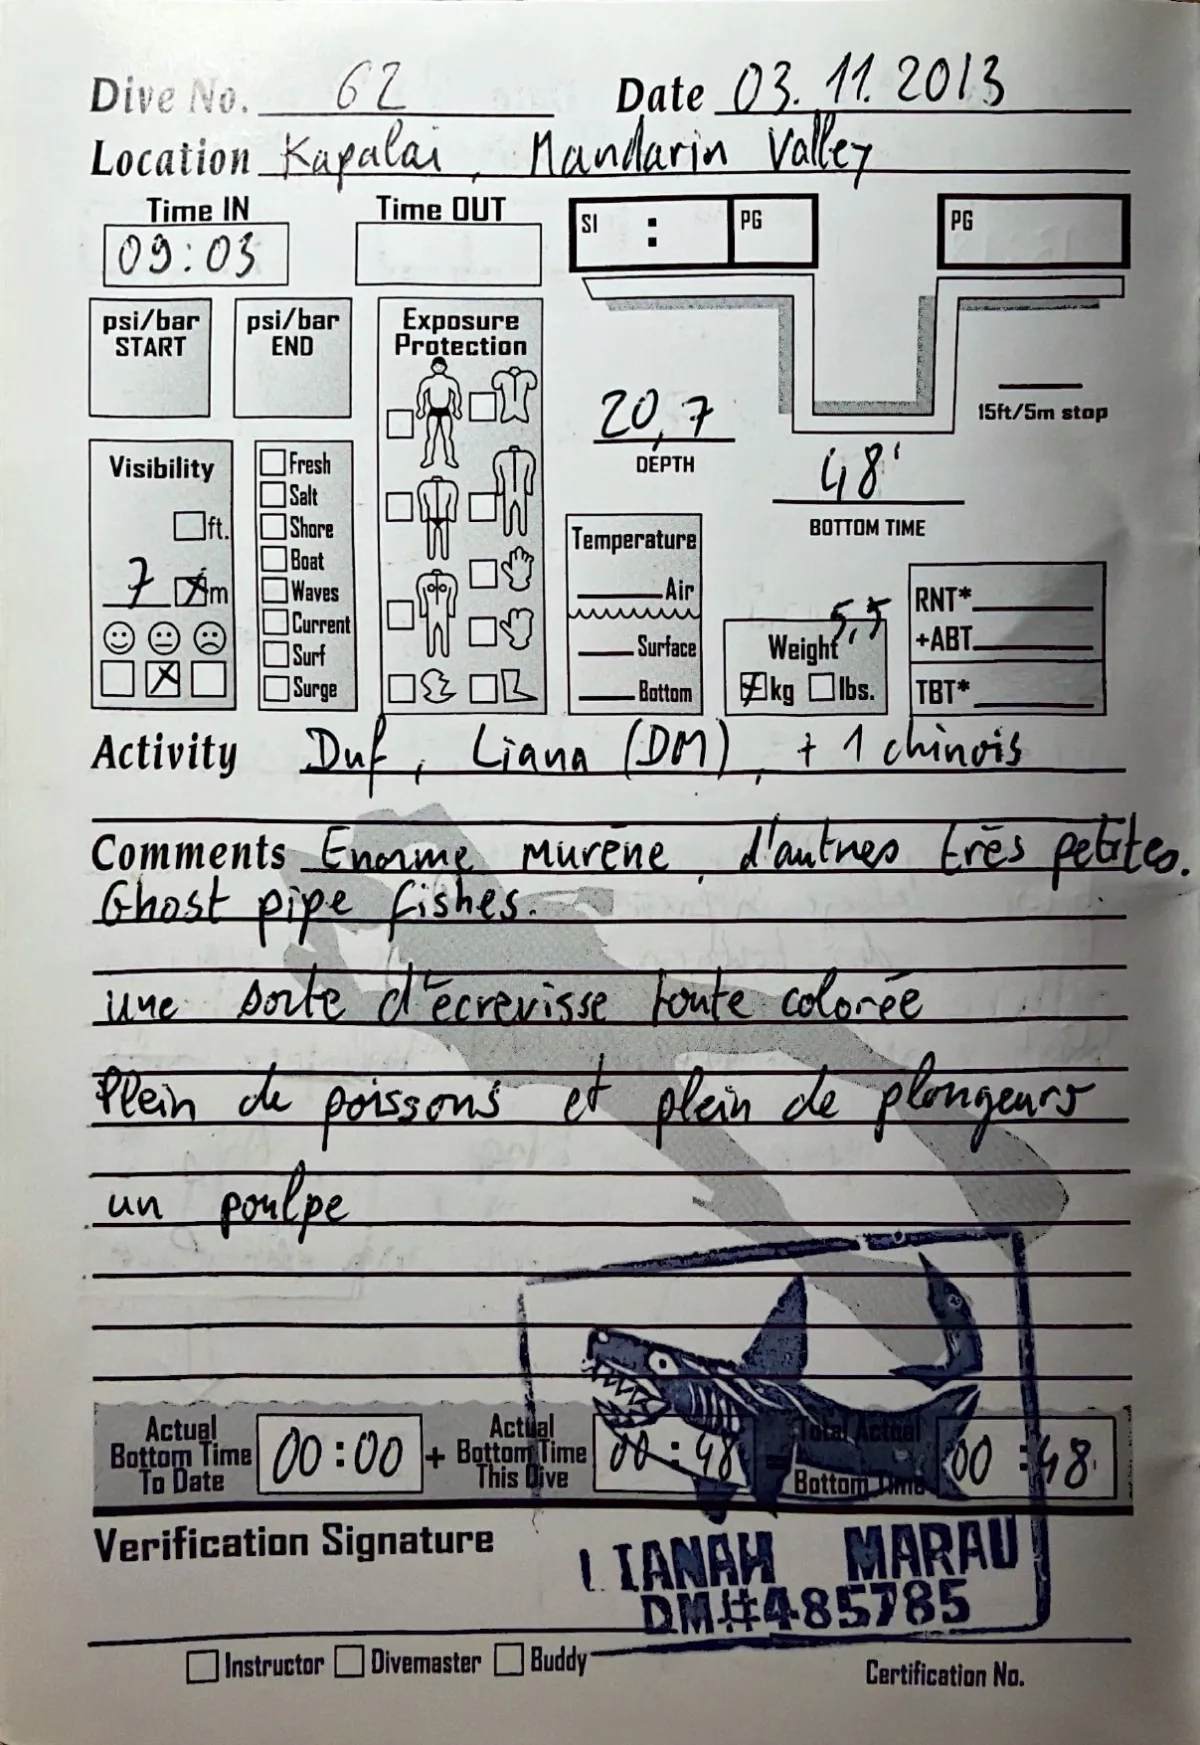 Dive No. 62 Date 03.11.2013
Location Kapalai, Mandarin Valley
Time IN Time OUT
09:03
SI : PG PG
psi/bar START psi/bar END
Exposure Protection
20,7
DEPTH
15ft/5m stop
48'
BOTTOM TIME
Visibility
ft.
7 m
Fresh
Salt
Shore
Boat
Waves
Current
Surf
Surge
Temperature
Air
Surface
Bottom
5,5
Weight
kg lbs.
RNT*
+ABT
TBT*
Activity Duf, Liana (DM), + 1 chinois
Comments Enorme murène, d'autres très petites.
Ghost pipe fishes.
une sorte d'écrevisse toute colorée
Plein de poissons et plein de plongeurs
un poulpe
Actual Bottom Time To Date 00:00 + Actual Bottom Time This Dive 00:48 = Total Actual Bottom Time 00:48
Verification Signature
LIANAH MARAU
DM#485785
Instructor Divemaster Buddy
Certification No.